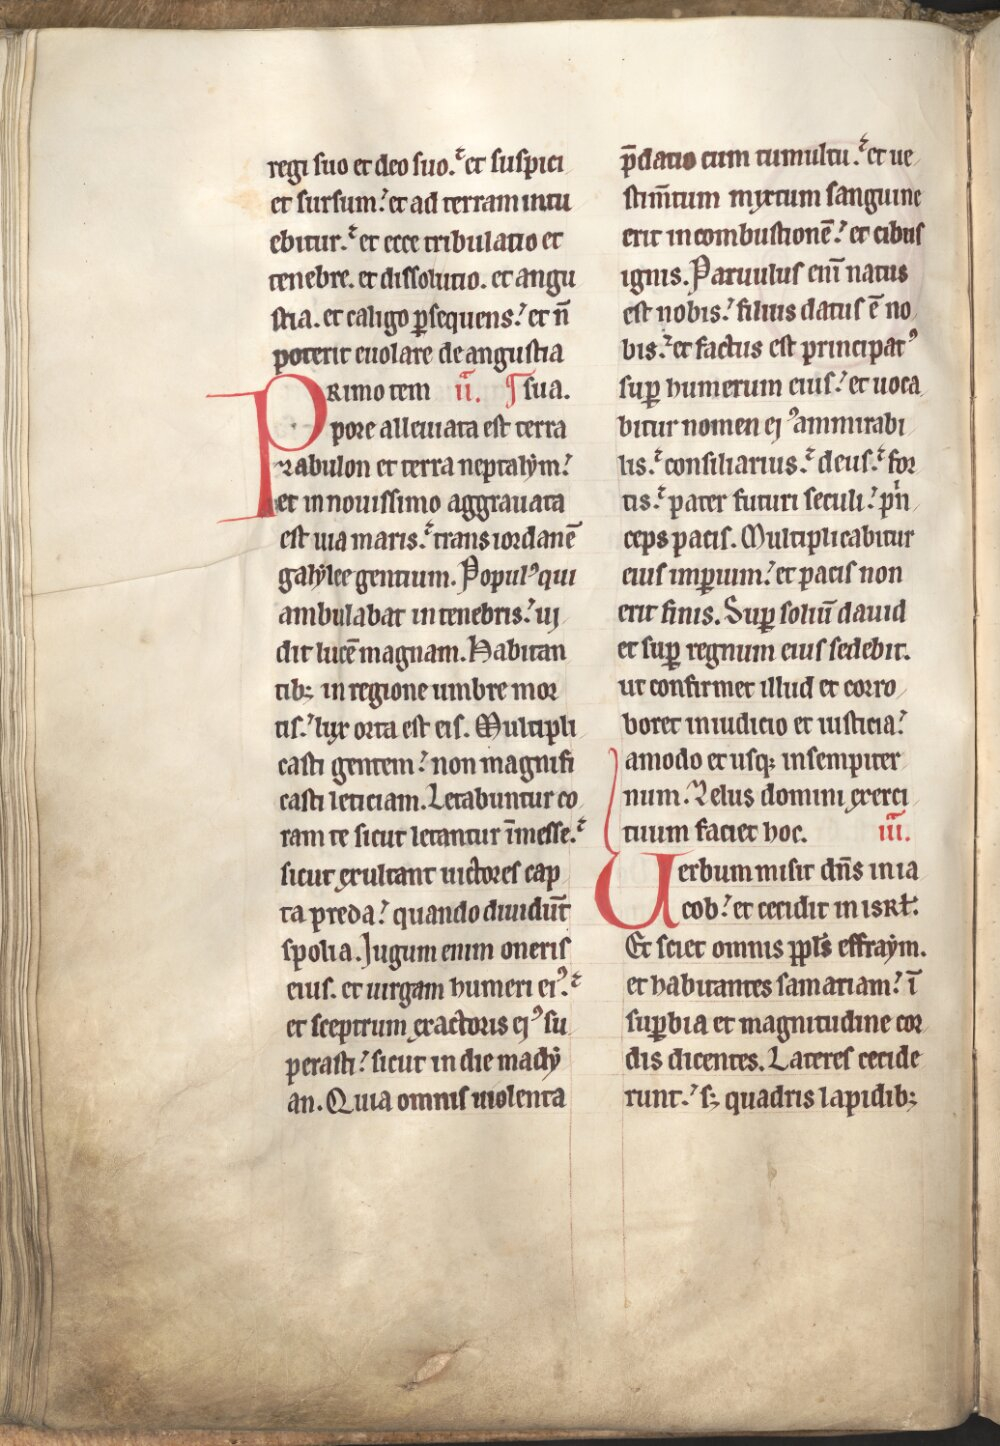 regi suo et deo suo. et suspici
et sursum. et ad terram intu
ebitur. et ecce tribulatio et
tenebre. et dissolutio. et angu
stia. et caligo ꝑsequens. et n̄
poterit euolare de angustia
PRimo tem   ii. ¶ sua.
pore alleuiata est terra
zabulon et terra neptalẏm.
et in nouissimo aggrauata
est uia maris. trans iordanē
galẏlee gentium. Populꝰ qui
ambulabat in tenebris. ui
dit lucē magnam. Habitan
tibꝫ in regione umbre mor
tis. lux orta est eis. Multipli
casti gentem. non magnifi
casti leticiam. Letabuntur co
ram te sicut letantur ī messe.
sicut exultant uictores cap
ta preda. quando diuidūt
spolia. Jugum enim oneris
eius. et uirgam humeri eiꝰ.
et sceptrum exactoris ejꝰ su
perasti. sicut in die madẏ
an. Quia omnis uiolenta
p̄datio cum tumultu. et ue
stim̄tum mixtum sanguine
erit in combustionē. et cibus
ignis. Paruulus enī natus
est nobis. filius datus ē no
bis. et factus est principatꝰ
suꝑ humerum eius. et uoca
bitur nomen ejꝰ ammirabi
lis. consiliarius. deus. for
tis. pater futuri seculi. pͥn
ceps pacis. Multiplicabitur
eius imꝑium. et pacis non
erit finis. Suꝑ soliū dauid
et suꝑ regnum eius sedebit.
ut confirmet illud et corro
boret in iudicio et iusticia.
amodo et usqꝫ in sempiter
num. Zelus domini exerci
tuum faciet hoc.   iii.
Uerbum misit dn̄s in ia
cob. et cecidit in isrl̄.
Et sciet omnis ppl̄s effraẏm.
et habitantes samariam. ī
suꝑbia et magnitudine cor
dis dicentes. Lateres cecide
runt. sꝫ quadris lapidibꝫ